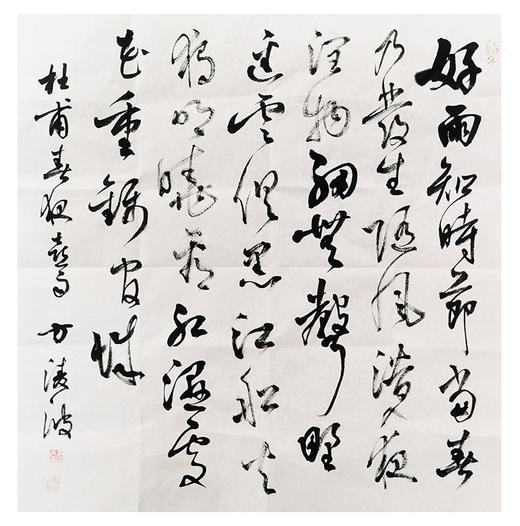 好雨知時節當春
乃發生随風潛夜
潤物細無聲野
逕雲俱黑江船火
獨明曉看紅濕處
花重錦官城
杜甫春夜喜雨 方淩波